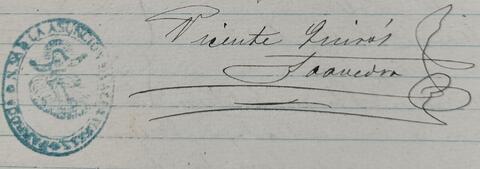 DE LA ASUNCION
Vicente Quirós
Saavedra